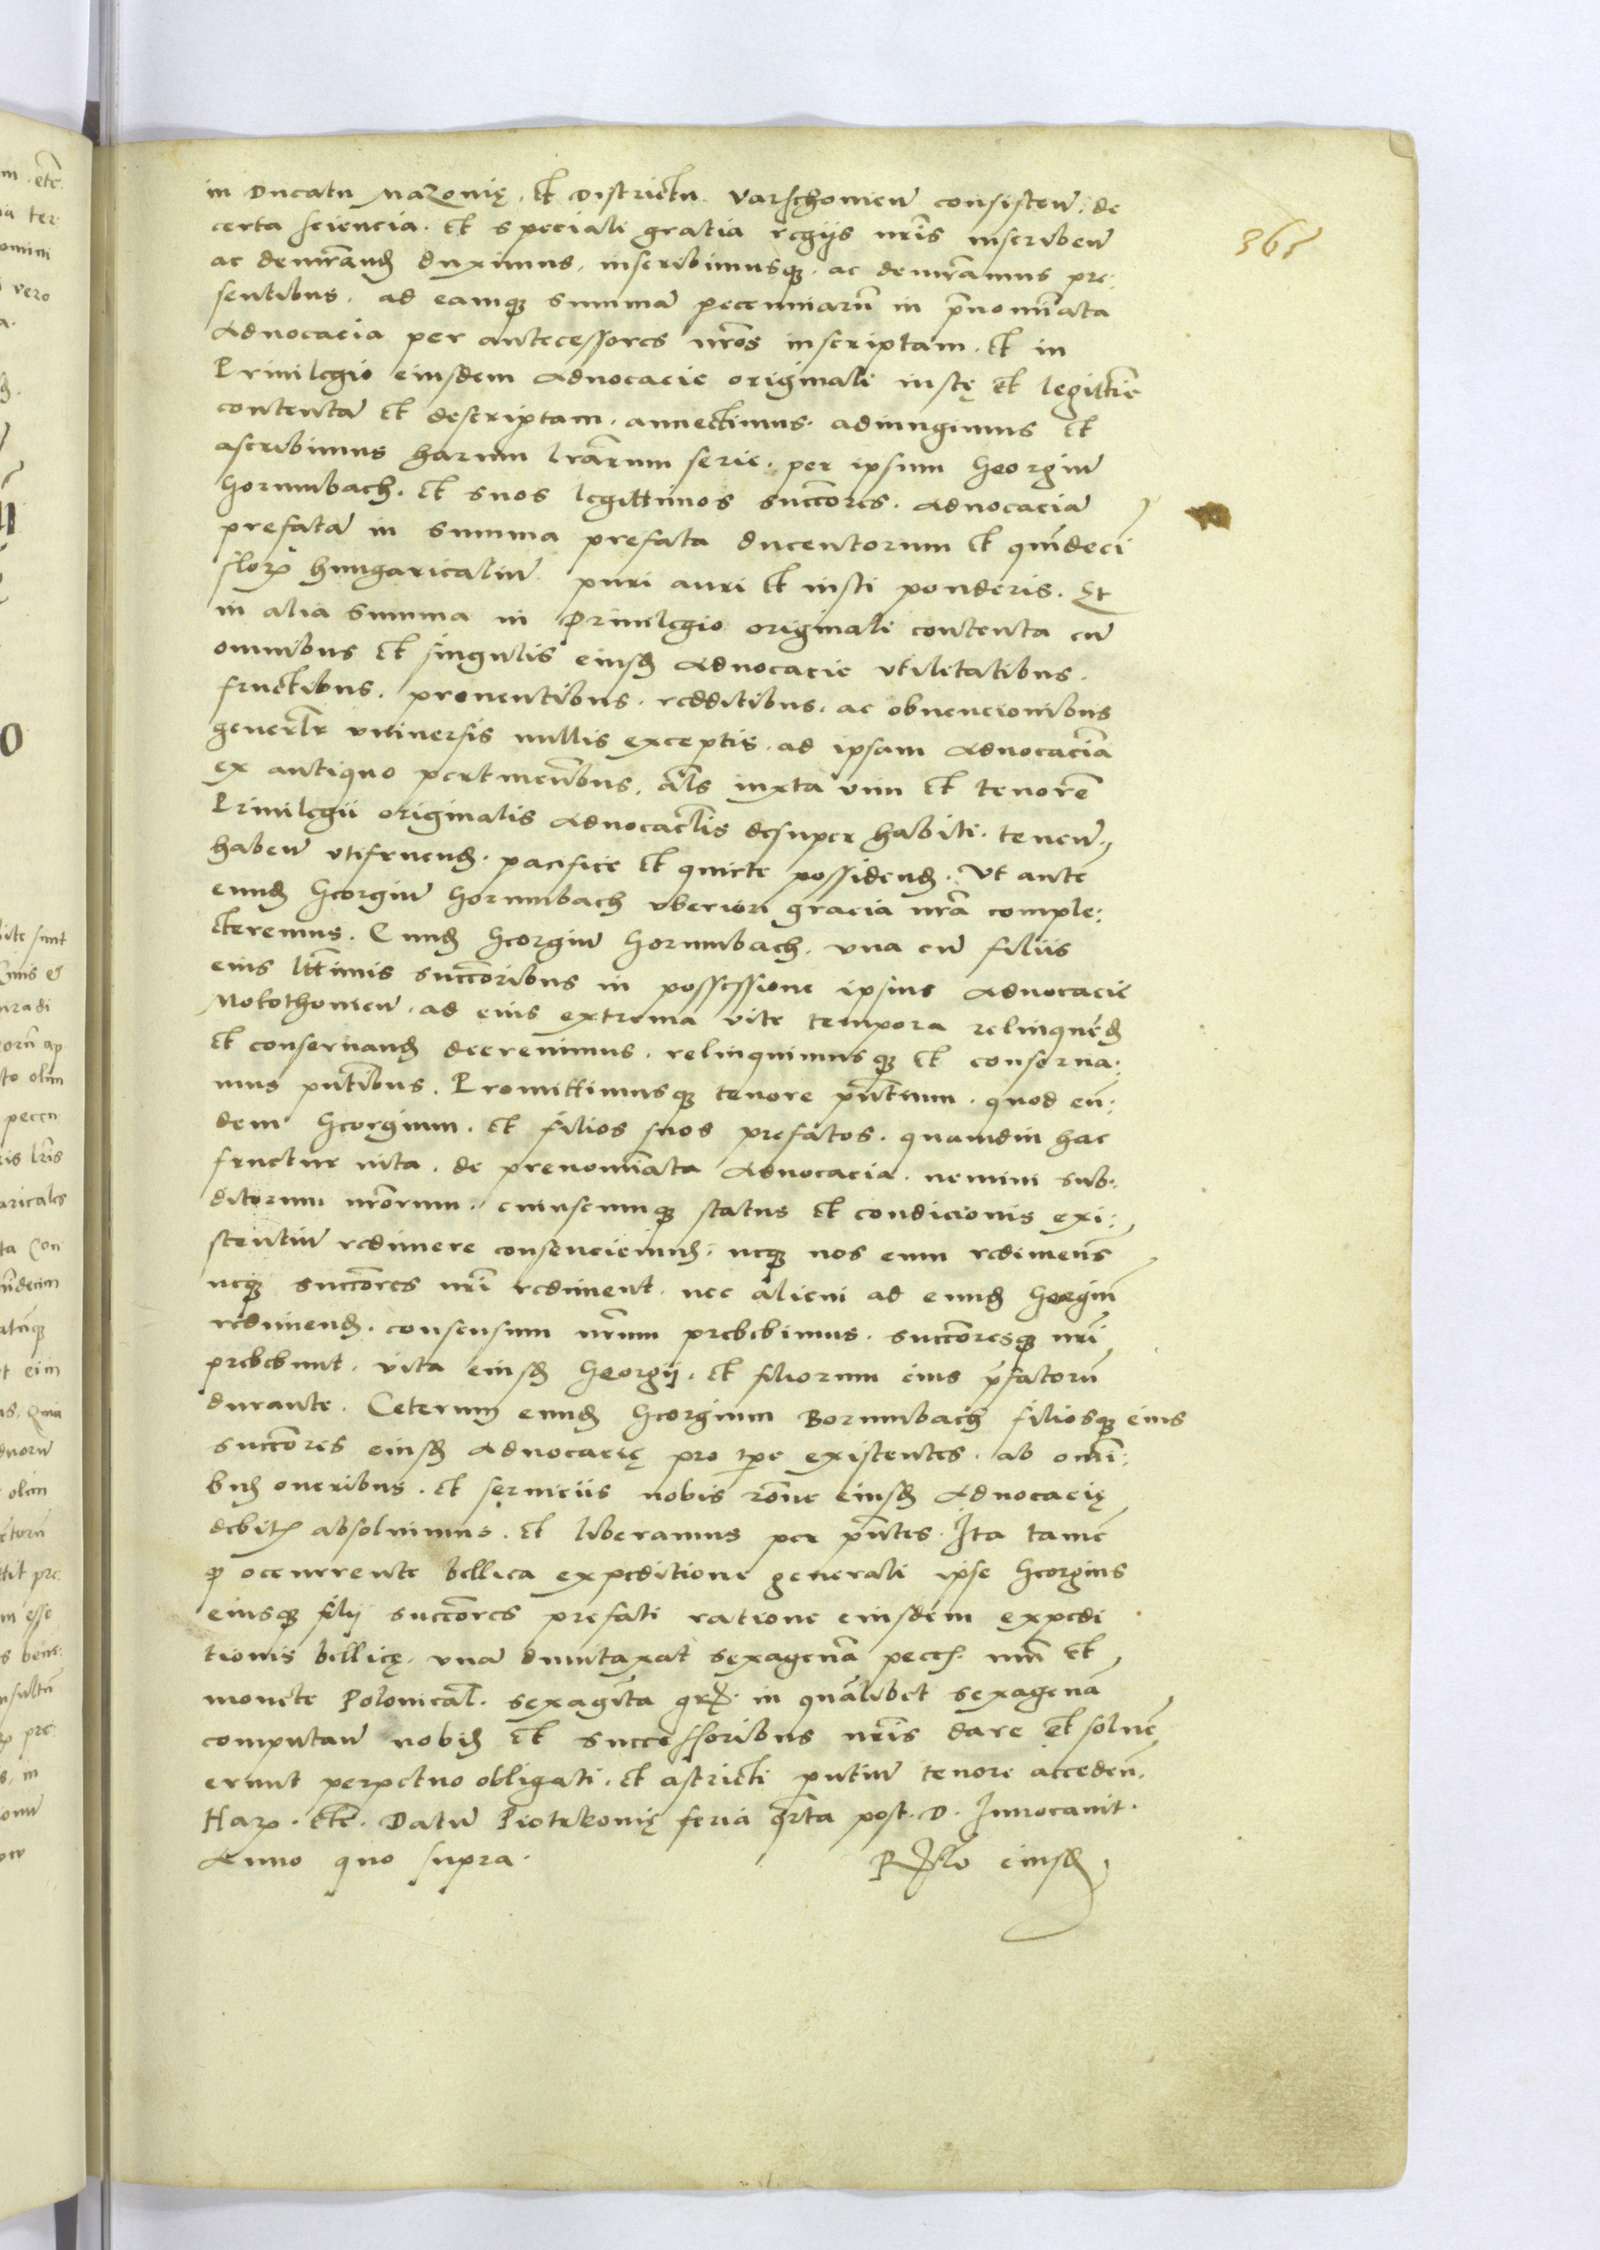 in Ducatu Mazouię, et Districtu Varschouien̄ consisten̄, de
certa sciencia et speciali gratia regijs nr̄is inscriben̄
ac demr̄and duximus, inscribimusq; ac demr̄amus pre:
sentibus, ad eamq; summā pecuniarū in p̄nomīata
Aduocacia per antecessores nr̄os inscriptam et in
Priuilegio eiusdem Aduocacie originali iustę et legittīe
contentā et descriptam, annectimus, adiungimus et
ascribimus harum lr̄arum serie, per ipsum Georgiū
Horumbach et suos legittimos succ̄ores, Aduocaciā
prefatā in summa prefata ducentorum et quīdecī
florꝝ hungaricaliū puri auri et iusti ponderis. Et
in alia summa in Priuilegio originali contenta cū
omnibus et singulis eiusd Aduocacie vtilitatibus,
fructibus, prouentibus, redditibus, ac obuencionibus
gener̄lr vniuersis nullis exceptis, ad ipsam Aduocaciā
ex antiquo pertinen̄bus, al̄s iuxta vim et tenorē
Priuilegii originalis Aduocac̄lis desuper habiti, tenen̄
haben̄ vtifruend, pacifice et quiete possidend. Vt autē
eund Georgiū Horumbach vberiori gracia nr̄a comple:
cteremus. Eund Georgiū Horumbach, vna cū filiis
eius ltt̄imis succ̄oribus in possessione ipsius Aduocacie
Mokothouien̄, ad eius extrema vite tempora relinquēd
et conseruand decreuimus, relinquimusq; et conserua:
mus pn̄tibus. Promittimusq; tenore pn̄tium, quod eū:
dem Georgium, et filios suos prefatos, quamdiu hac
fructur uita, de prenomīata Aduocacia, nemini sub:
ditorum nr̄orum, cuiuscumq; status et condicionis exi:
stentiū redimere consenciemus, neq; nos eum redimem̄s
neq; succ̄ores nr̄i rediment, nec alicui ad eund Georgiū
redimend, consensum nr̄um prebebimus, succ̄oresq; nr̄i
prebebunt, vita eiusd Georgij, et filiorum eius p̄fatorū
durante. Ceterum eund Georgium Borumbach filiosq; eius
succ̄ores eiusd Aduocacię pro tp̄e existentes, ab om̄i:
bus oneribus, et seruiciis nobis rōne eiusd Aduocacię
debitꝭ absoluimus, et liberamus per pn̄tes. Ita tamē
ꝙ occurrente bellica expeditione generali ipse Georgius
eiusq; filij succ̄ores prefati ratione eiusdem expedi
tionis bellicę, vnā dumtaxat sexagenā pecc̄ nūi et
monete Polonical. sexagīta gr̄ in quālibet sexagenā
computan̄ nobis et successoribus nr̄is dare et soluē
erunt perpetuo obligati, et astricti pn̄tiū tenore acceden̄.
Harꝝ, etc̄. Datū Piotrkouię feria qr̄ta post D. Inuocauit.
Anno quo supra.